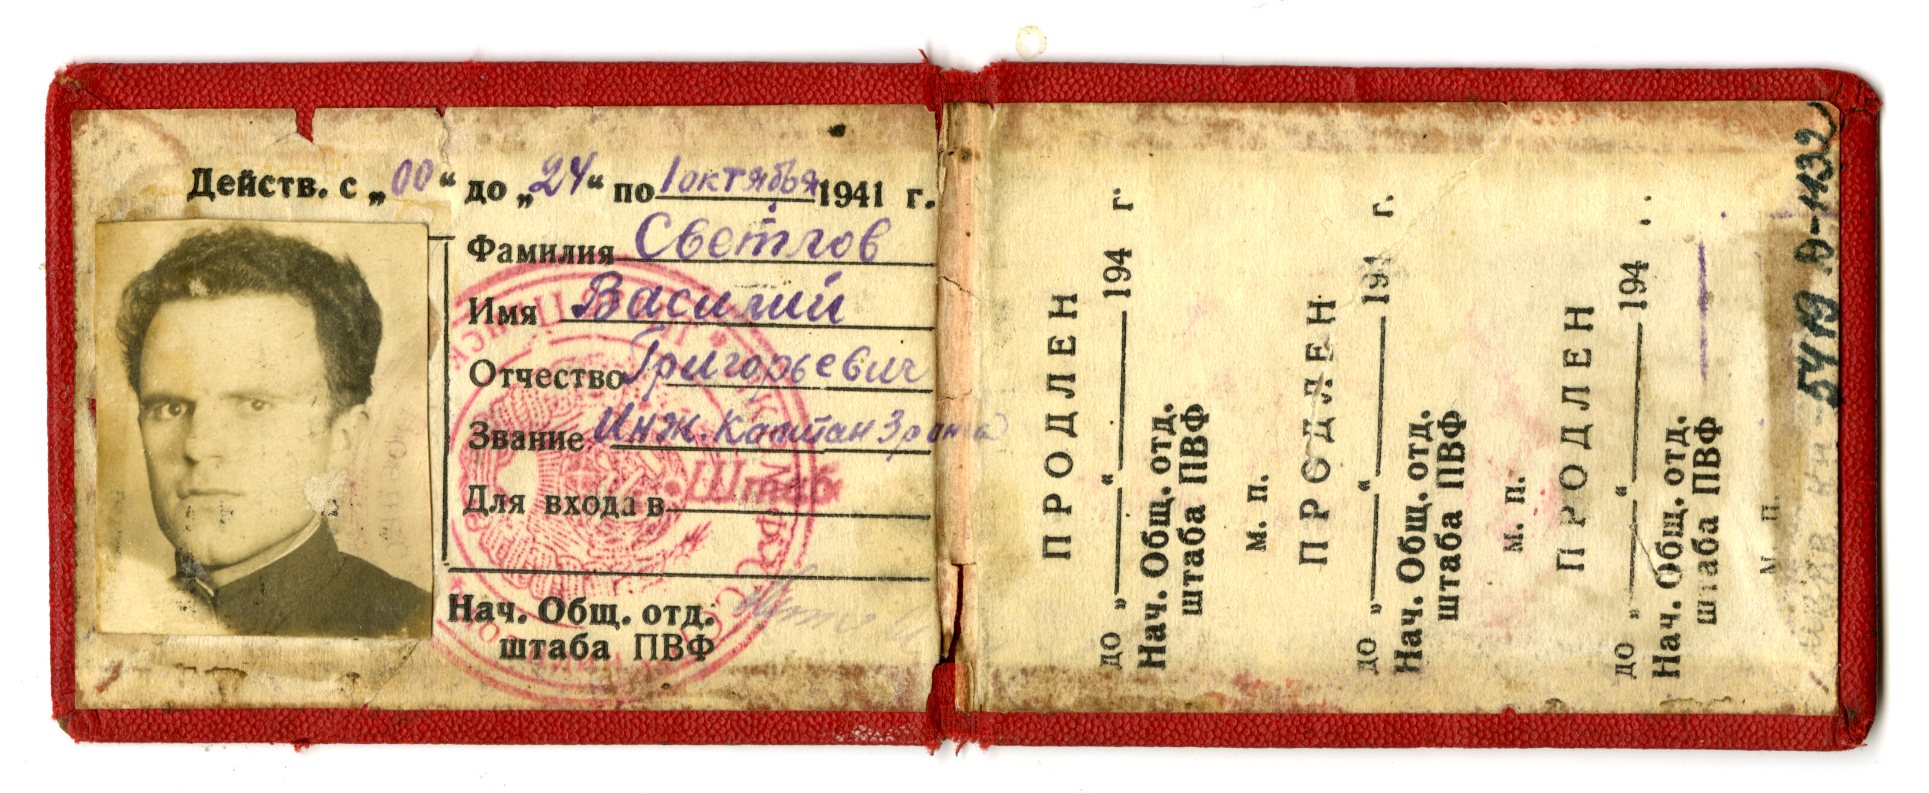 Действ. с „00“ до „24“ по 1 октября 1941 г.
Фамилия Светлов
Имя Василий
Отчество Григорьевич
Звание Инж. Капитан 3 ранга
Для входа в Штаб
Нач. Общ. отд.
штаба ПВФ
ПРОДЛЕН
до „ “ 194 г.
Нач. Общ. отд.
штаба ПВФ
м. п.
ПРОДЛЕН
до „ “ 194 г.
Нач. Общ. отд.
штаба ПВФ
м. п.
ПРОДЛЕН
до „ “ 194
Нач. Общ. отд.
штаба ПВФ
м. п.
5419
-1132